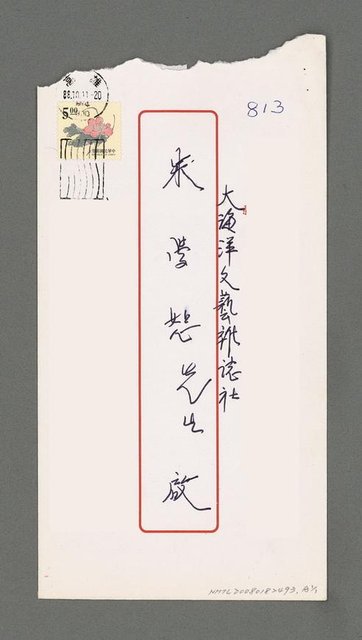 88.10.11.-20
5.00
813
大海洋文藝雜誌社
朱學恕先生 啟
NMTL20080182493